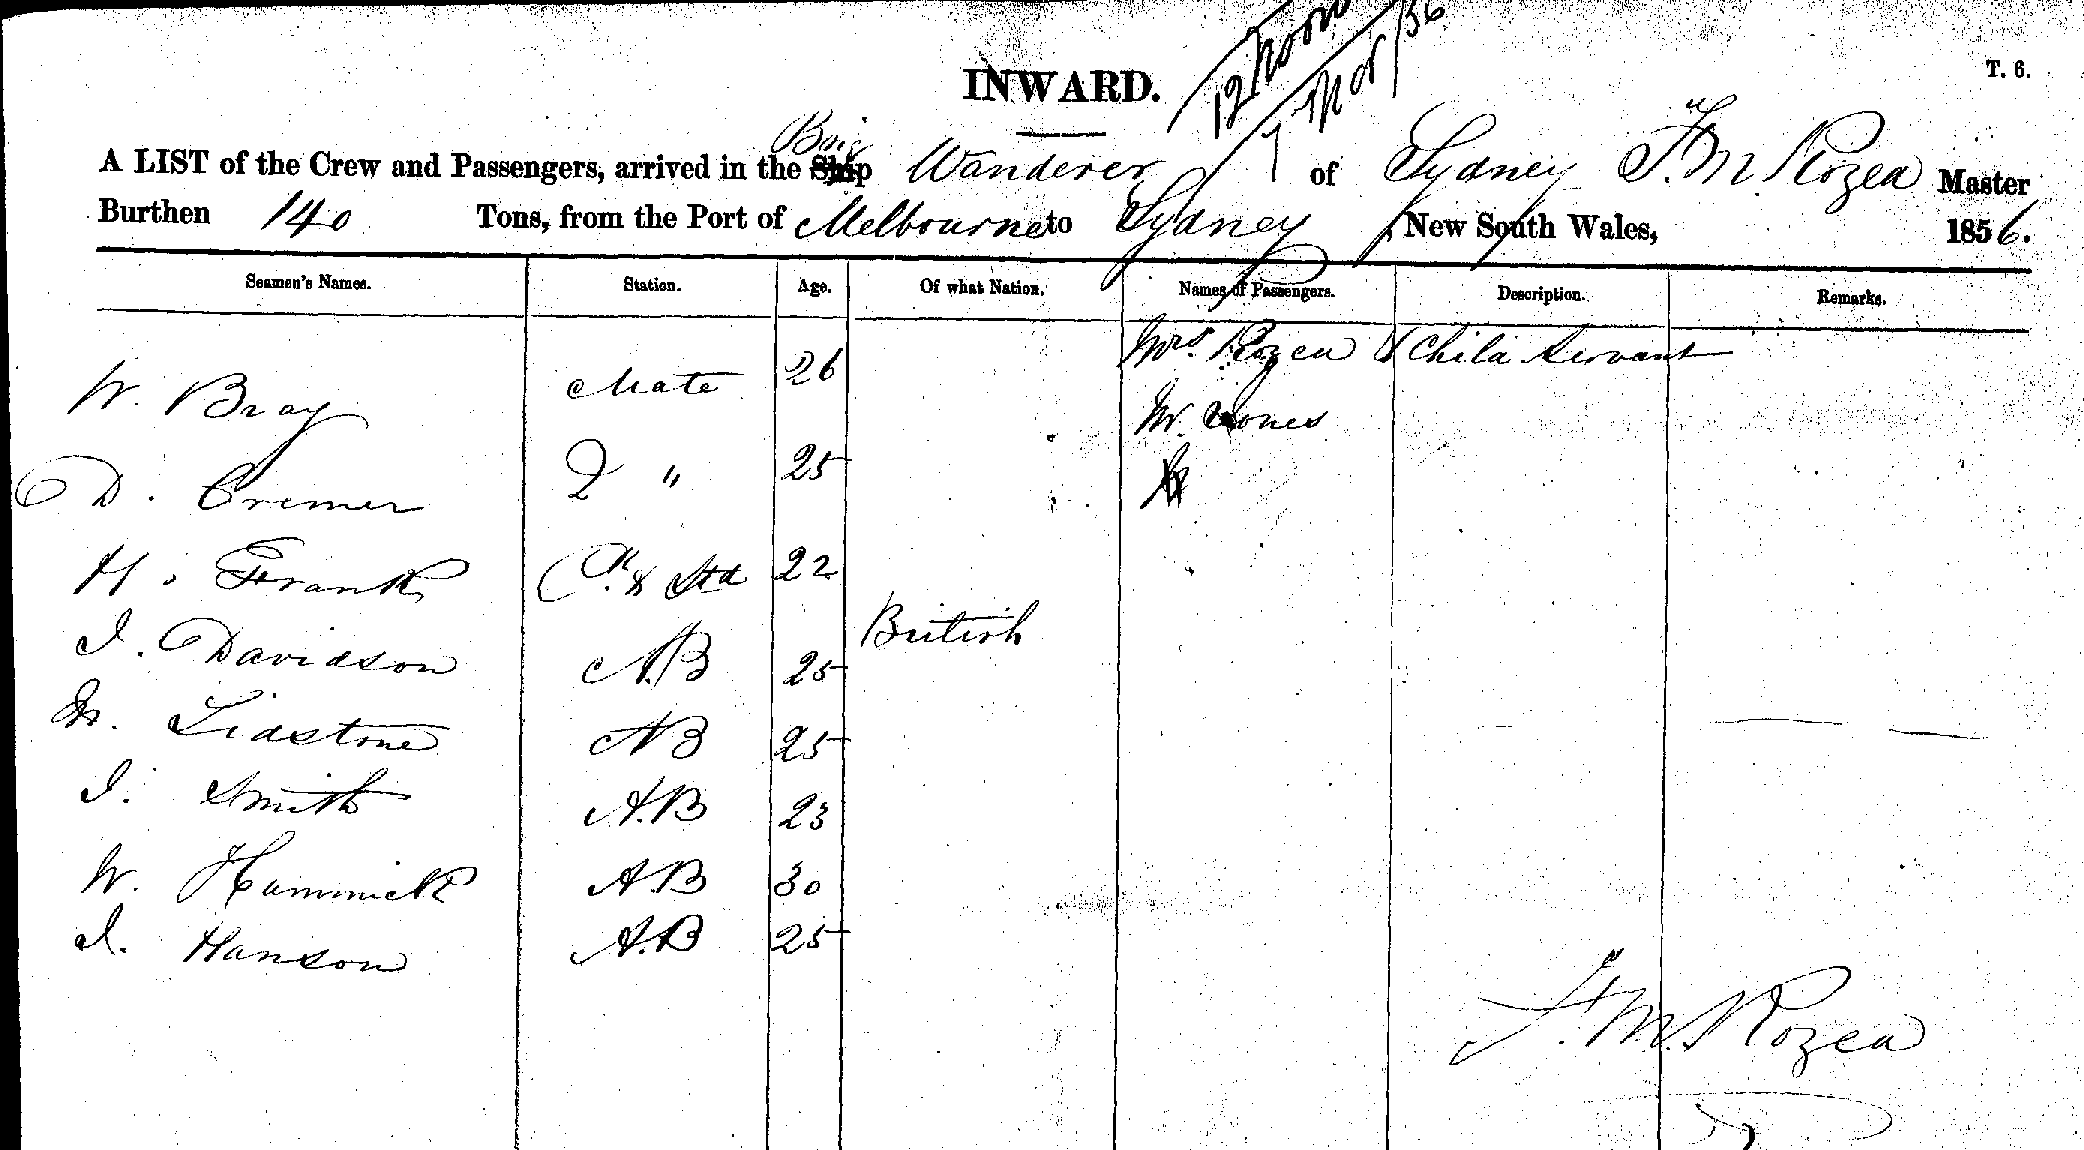 12 Noon
7 Nov/56
INWARD.
T. 6.
A LIST of the Crew and Passengers, arrived in the Ship Brig Wanderer of Sydney F. M. Rozea Master
Burthen 140 Tons, from the Port of Melbourne to Sydney, New South Wales, 1856.
Seamen's Names. Station. Age. Of what Nation. Names of Passengers. Description. Remarks.
Mrs. Rozea & Child Servant
W. Bray Mate 26
Mr. Jones
D. Cremer 2 " 25
H. Frank Ck. & Std 22
British
J. Davidson A.B 25
Lidstone AB 25
J. Smith A.B 23
W. Hammick AB 30
J. Hanson A.B 25
F. M. Rozea